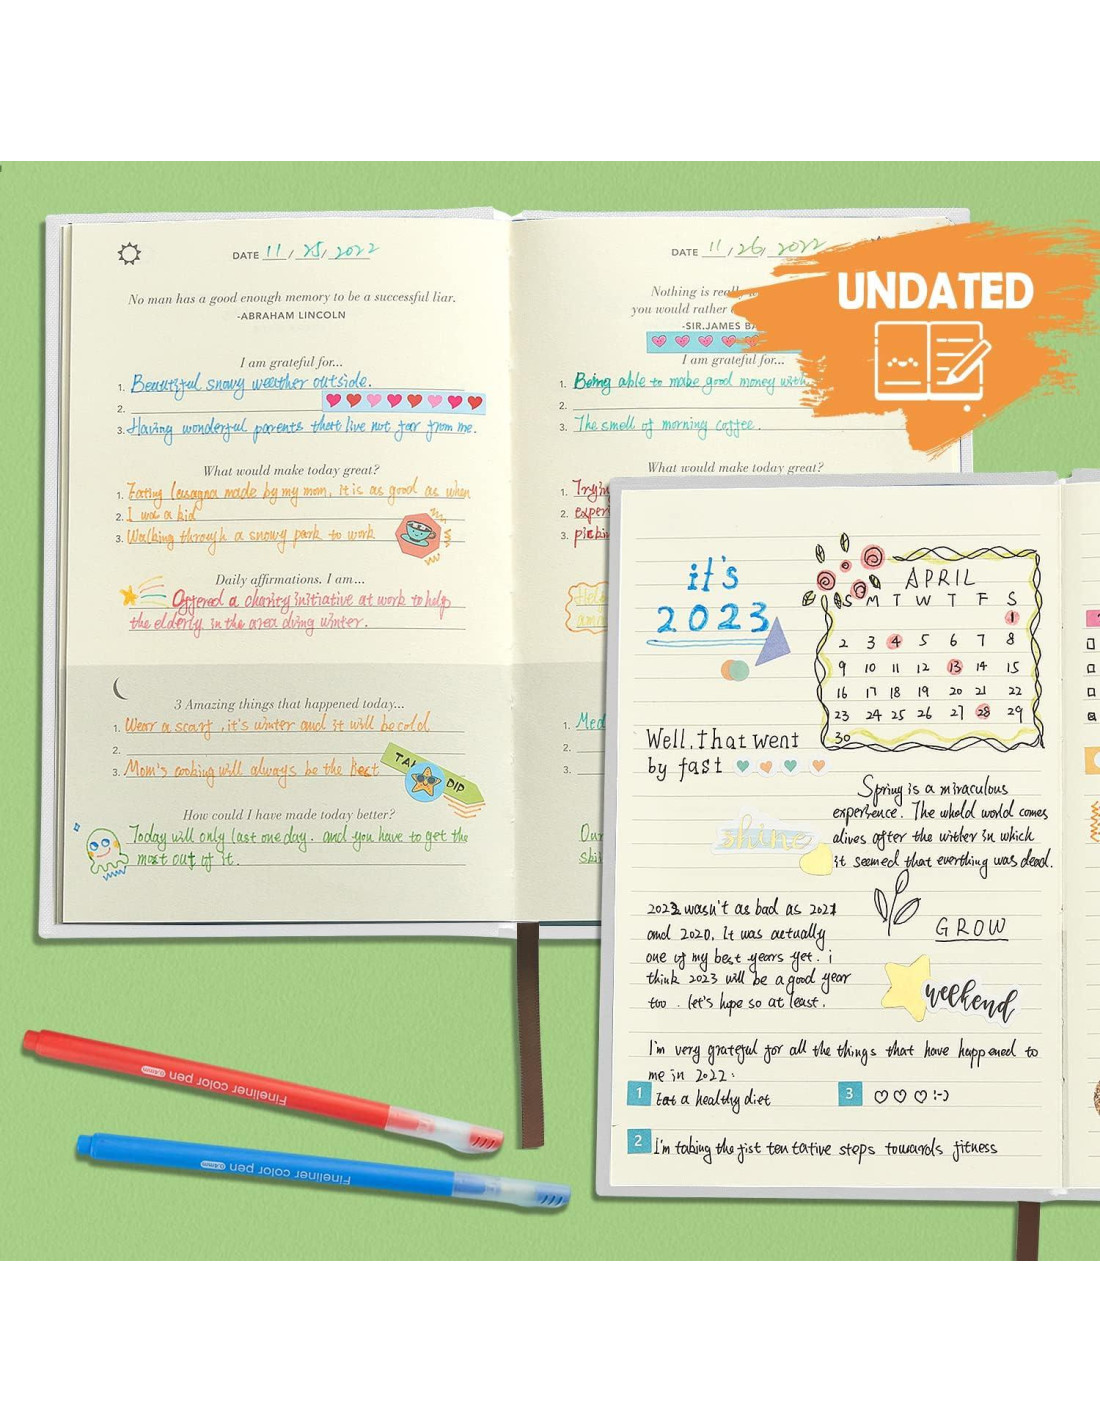 DATE 11/25/2022
No man has a good enough memory to be a successful liar.
-ABRAHAM LINCOLN
I am grateful for...
1. Beautiful snowy weather outside.
2.
3. Having wonderful parents that live not far from me.
What would make today great?
1. Eating lasagna made by my mom, it is as good as when
2. I was a kid
3. Walking through a snowy park to work
Daily affirmations. I am...
Offered a charity initiative at work to help
the elderly in the area diving winter.
3 Amazing things that happened today...
1. Wear a scarf, it's winter and it will be cold
2.
3. Mom's cooking will always be the best
DIP
How could I have made today better?
Today will only last one day. and you have to get the
most out of it.
DATE 11/26/2022
Nothing is really
you would rather
-SIR.JAMES
I am grateful for...
1. Being able to make good money with
2.
3. The smell of morning coffee.
What would make today great?
1.
2.
3.
1.
2.
3.
UNDATED
it's
2023
APRIL
S M T W T F S
1
2 3 4 5 6 7 8
9 10 11 12 13 14 15
16 17 18 19 20 21 22
23 24 25 26 27 28 29
30
Well, that went
by fast
Spring is a miraculous
experience. The whold world comes
alives after the winter in which
it seemed that everthing was dead.
shine
2022 wasn't as bad as 2021
and 2020. It was actually
one of my best years yet. i
think 2023 will be a good year
too. let's hope so at least.
GROW
weekend
I'm very grateful for all the things that have happened to
me in 2022:
1 Eat a healthy diet
3 ♡♡♡ :-)
2 I'm taking the fist ten tative steps towards fitness
Fineliner color pen 0.4mm
Fineliner color pen 0.4mm